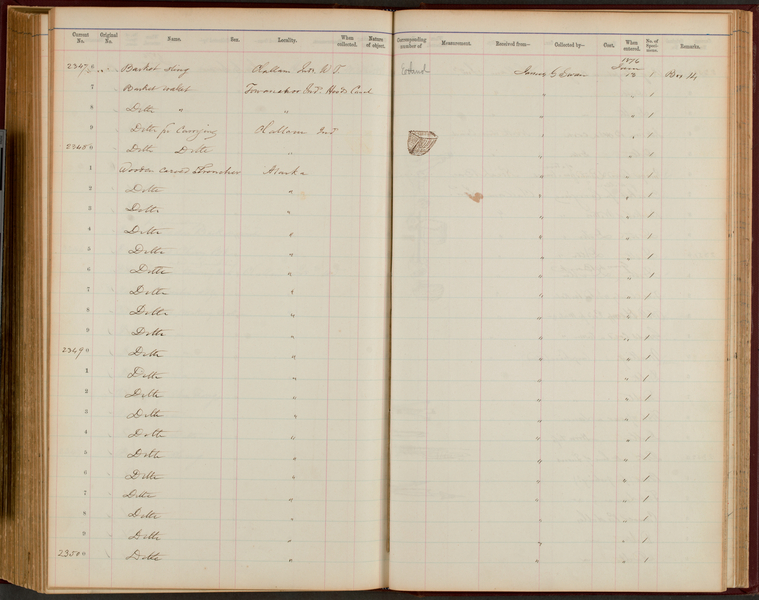 Current No. Original No. Name. Sex. Locality. When collected. Nature of object. Corresponding number of Measurement. Received from— Collected by— Cost. When entered. No. of Specimens. Remarks.
1876
June
2347 Basket sling Clallam Inds W. T. James G Swan 12 1 Box 14
7 Basket wallet Inds Hoods Canal " " 1
8 Ditto " " " " 1
9 Ditto for Carrying Clallam Inds " " 1
23480 Ditto Ditto " " " 1
1 Wooden carved Alaska " " 1
2 Ditto " " " 1
3 Ditto " " " 1
4 Ditto " " " 1
5 Ditto " " " 1
6 Ditto " " " 1
7 Ditto " " " 1
8 Ditto " " " 1
9 Ditto " " " 1
23490 Ditto " " " 1
1 Ditto " " " 1
2 Ditto " " " 1
3 Ditto " " " 1
4 Ditto " " " 1
5 Ditto " " " 1
6 Ditto " " " 1
7 Ditto " " " 1
8 Ditto " " " 1
9 Ditto " " " 1
23500 Ditto " " " 1